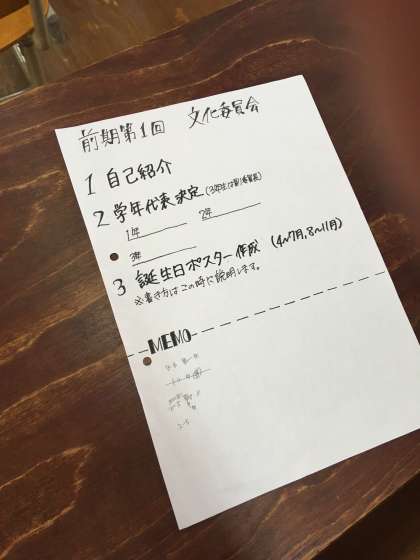 前期第1回 文化委員会
1 自己紹介
2 学年代表決定(3年生は副委員長)
1年 2年
3年
3 誕生日ポスター作成 (4~7月,8~11月)
※書き方はこの時に説明します。
MEMO